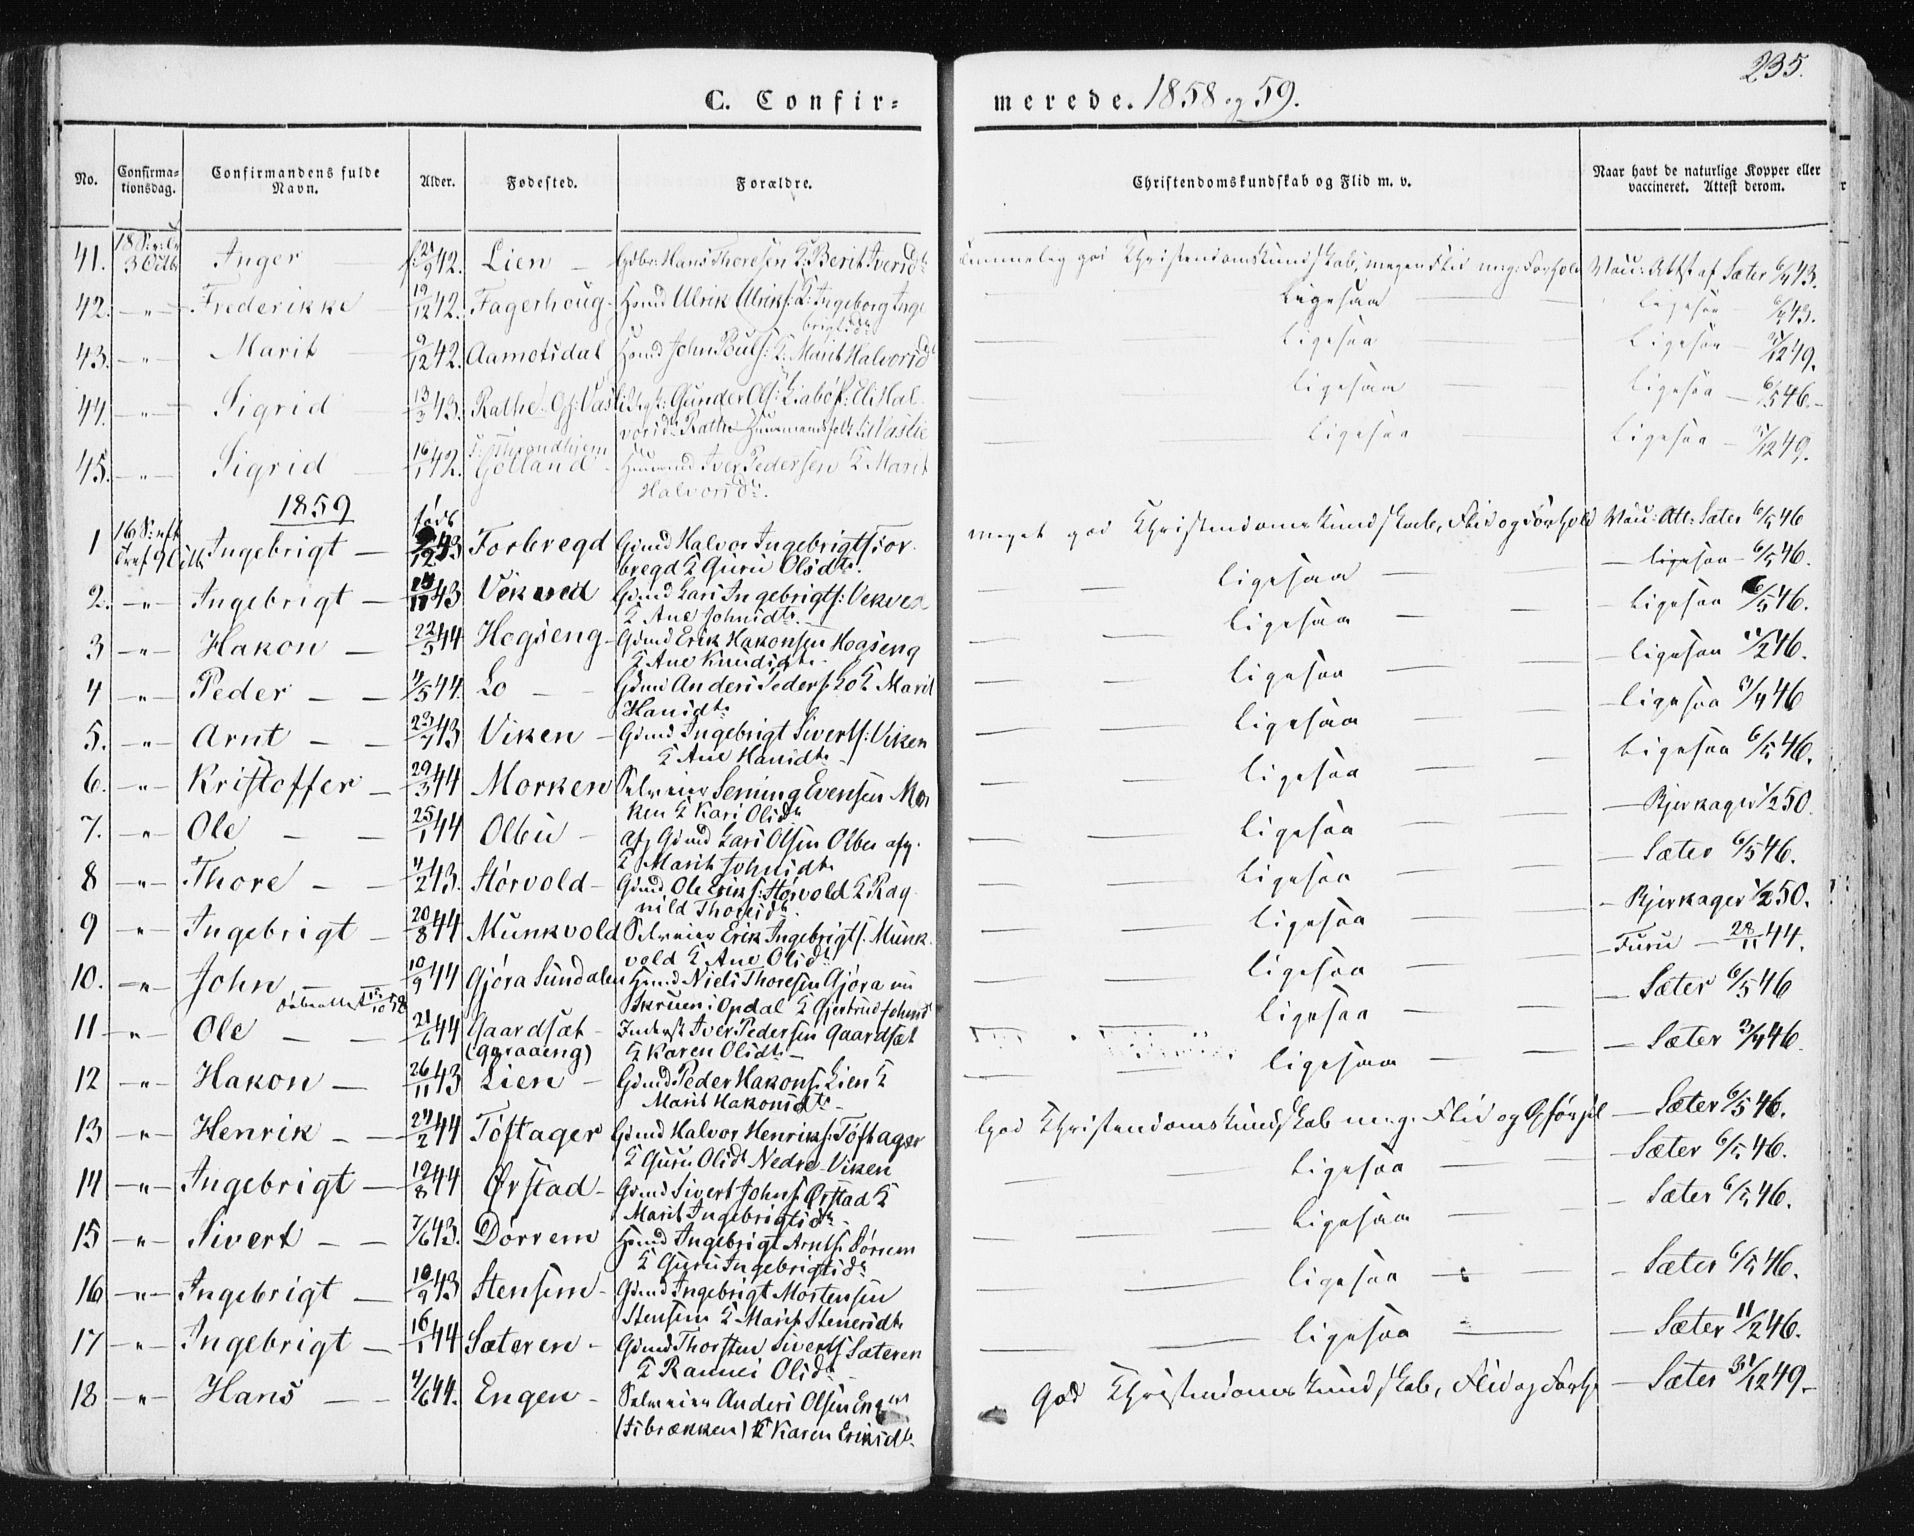 235.
C. Confir= merede. 1858 og 59.
No. Confirma-tionsdag. Confirmandens fulde Navn. Alder. Fødested. Forældre. Christendomskundskab og Flid m. v. Naar havt de naturlige Kopper eller vaccineret. Attest derom.
41. 3 Octb Inger 21/9 42. Lien Hans Thoresen & Berit Iversdt. god Christendomskundskab, megen Flid Vacc: Attst af Sæter 6/5 43.
42. " Frederikke 19/12 42. Fagerhoug Hsmd Ulrik Ulriks: & Ingeborg Inge
brigtsdt. Ligesaa Ligesaa 43.
43. " Marit 9/12 42. Aamotsdal Hsmd John Pouls: & Marit Halvorsdt Ligesaa Ligesaa 12 49.
44. " Sigrid 13/3 43. Rathe Gunder Ols: & Eli Hal-
vorsdt Rathe Ligesaa Ligesaa 6/5 46.
45. " Sigrid 16/1 42. Trondhjem
Gølland Iver Pedersen & Marit
Halvorsdt. Ligesaa Ligesaa 12 49.
1859
1 Ingebrigt født 12 43 Forbregd Gdmd Halvor Ingebrigts: For-
bregd & Guru Olsdt. meget god Christendomskundskab, Flid og Forhold Vacc: Att: Sæter 6/5 46
2. " Ingebrigt 43 Vekved Gdmd Lars Ingebrigts: Vekved
& Ane Johnsdt. Ligesaa Ligesaa 6/5 46.
3 " Hakon 22/5 44 Hogseng Gdmd Erik Hakonsen Hogseng
& Ane Knudsdt. Ligesaa Ligesaa 6/5 46.
4 " Peder 4/5 44. Lo Gdmd Anders Peders: Lo & Marit
Hansdt. Ligesaa Ligesaa 11/2 46.
5. " Arnt 23/7 43 Viken Gdmd Ingebrigt Siverts: Viken
& Ane Hansdt. Ligesaa Ligesaa 46
6. " Kristoffer 29/3 44 Morken Selveier Seming Evensen Mor
ken & Kari Olsdt Ligesaa Ligesaa 6/5 46.
7. " Ole 25/1 44 Olbu Gdmd Lars Olsen Olbu
& Marit Johnsdt. Ligesaa Bjerkager 1/2 50.
8 " Thore 4/2 43. Størvold Gdmd Ole Eriks: Størvold & Rag
nild Thoresdt. Ligesaa Sæter 6/5 46.
9 " Ingebrigt 20/8 44 Munkvold Selveier Erik Ingebrigts: Munk-
vold & Ane Olsdt Ligesaa Bjerkager 1/2 50.
10. " John 10/9 44 Gjöra Sundalen Hsmd Niels Thoresen Gjöra nu
Skruen i Opdal & Gjertrud Johnsd Ligesaa Furu 28/11 44.
11 " Ole 21/6 44 Gaardsæt
(Ggraaeng) Inderst Iver Pedersen Gaardsæt
& Karen Olsdt. Ligesaa Sæter 6/5 46
12 " Hakon 26/11 43 Lien Gdmd Peder Hakons: Lien &
Marit Hakonsdt. Ligesaa Sæter 46
13 " Henrik 24/2 44 Töftager Gdmd Halvor Henriks: Töftager
& Guru Olsdt Nedre Viken God Christendomskundskab meg: Flid og Sæter 6/5 46.
14 " Ingebrigt 12/8 44 Ørstad Gdmd Sivert Johns: Ørstad &
Marit Ingebrigtsdt. Ligesaa Sæter 6/5 46.
15 " Sivert 7/6 43. Dörrem Hsmd Ingebrigt Arnts: Dörrem
& Guru Ingebrigtsdt. Ligesaa Sæter 6/5 46.
16 " Ingebrigt 10/9 43 Stensem Gdmd Ingebrigt Mortensen
Stensem & Marit Stenersdt. Ligesaa Sæter 6/5 46.
17 " Ingebrigt 16/1 44 Sæteren Gdmd Thorsten Siverts: Sæteren
& Rannei Olsdt. Ligesaa Sæter 11/2 46.
18 " Hans 4/6 44. Engen Selveier Anders Olsen Engen
(Fibrækken) & Karen Eriksdt. God Christendomskundskab, Flid og Forh Sæter 31/12 49.